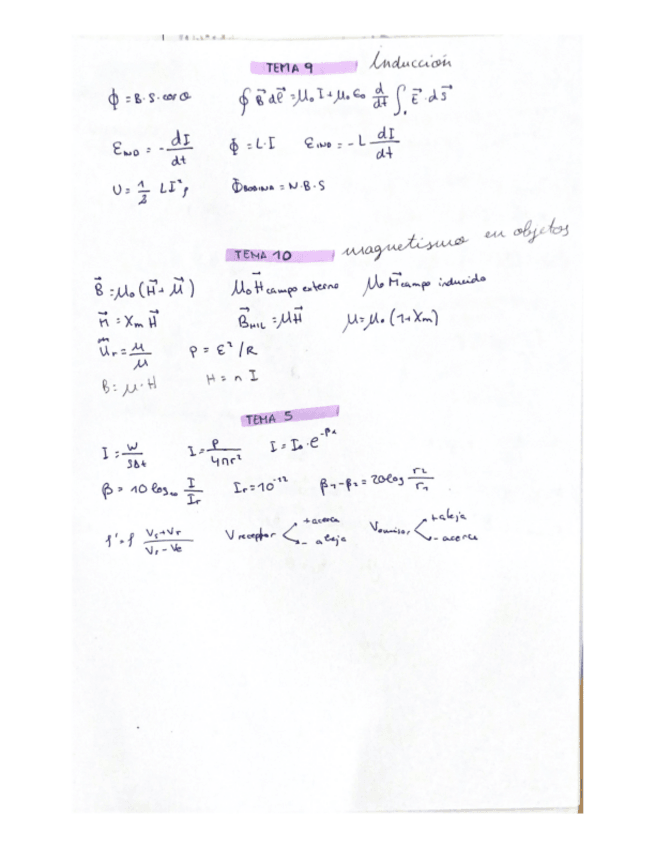 TEMA 9 Inducción
ϕ = B·S·cos θ ∮ B⃗ dℓ⃗ = μ₀ I + μ₀ ε₀ d/dt ∫ₛ E⃗·dS⃗
ε_IND = - dI/dt Φ = L·I ε_IND = -L dI/dt
U = 1/2 LI² Φ_BOBINA = N·B·S
TEMA 10 magnetismo en objetos
B⃗ = μ₀(H⃗ + M⃗) μ₀H⃗ campo externo μ₀M⃗ campo inducido
M⃗ = Xm H⃗ B⃗_MIL = μH⃗ μ = μ₀(1+Xm)
μr = μ/μ P = ε²/R
B = μ·H H = n I
TEMA 5
I = W/SΔt I = P/4πr² I = I₀·e^-βx
β = 10 log₁₀ I/Ir Ir = 10⁻¹² β₁-β₂ = 20log r₂/r₁
f' = f Vs+Vr/Vs-Ve V receptor + acerca - aleja V emisor + aleja - acerca